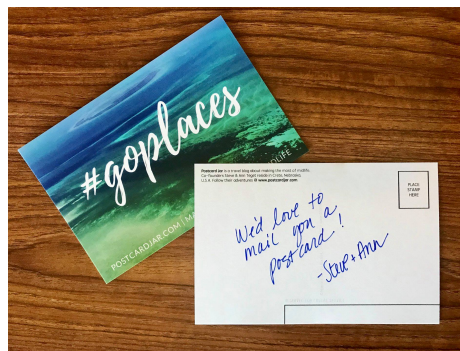 #goplaces
POSTCARDJAR.COM | MA
DLIFE
Postcard Jar is a travel blog about making the most of midlife.
Co-Founders Steve & Ann Teget reside in Crete, Nebraska,
U.S.A. Follow their adventures @ www.postcardjar.com
PLACE
STAMP
HERE
We'd love to
mail you a
postcard!
-Steve + Ann